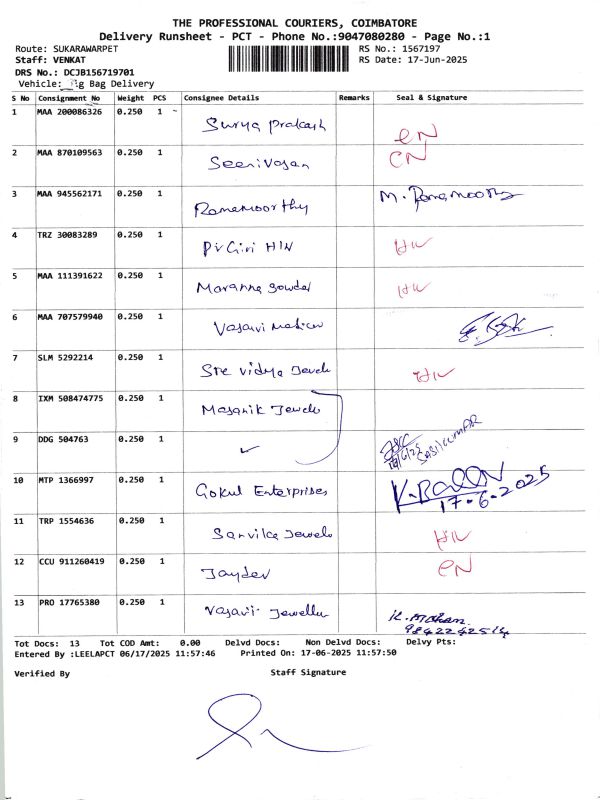 THE PROFESSIONAL COURIERS, COIMBATORE
Delivery Runsheet - PCT - Phone No.:9047080280 - Page No.:1
Route: SUKARAWARPET RS No.: 1567197
Staff: VENKAT RS Date: 17-Jun-2025
DRS No.: DCJB156719701
Vehicle: Bag Delivery
S No Consignment No Weight PCS Consignee Details Remarks Seal & Signature
1 MAA 200086326 0.250 1 Surya Prakash CN
2 MAA 870109563 0.250 1 Seenivasan CN
3 MAA 945562171 0.250 1 Ramamoorthy M. Ramamoorthy
4 TRZ 30083289 0.250 1 HIN
5 MAA 111391622 0.250 1
6 MAA 707579940 0.250 1 Vasavi
7 SLM 5292214 0.250 1 Sre Vidya Jewels
8 IXM 508474775 0.250 1 Jewels
9 DDG 504763 0.250 1 ✓ SASIKUMAR
10 MTP 1366997 0.250 1 Gokul Enterprises
17-6-2025
11 TRP 1554636 0.250 1 Sanvika Jewels
12 CCU 911260419 0.250 1 Jaydev CN
13 PRO 17765380 0.250 1 Vasavi Jewellers K. Mohan
9842242514
Tot Docs: 13 Tot COD Amt: 0.00 Delvd Docs: Non Delvd Docs: Delvy Pts:
Entered By :LEELAPCT 06/17/2025 11:57:46 Printed On: 17-06-2025 11:57:50
Verified By Staff Signature